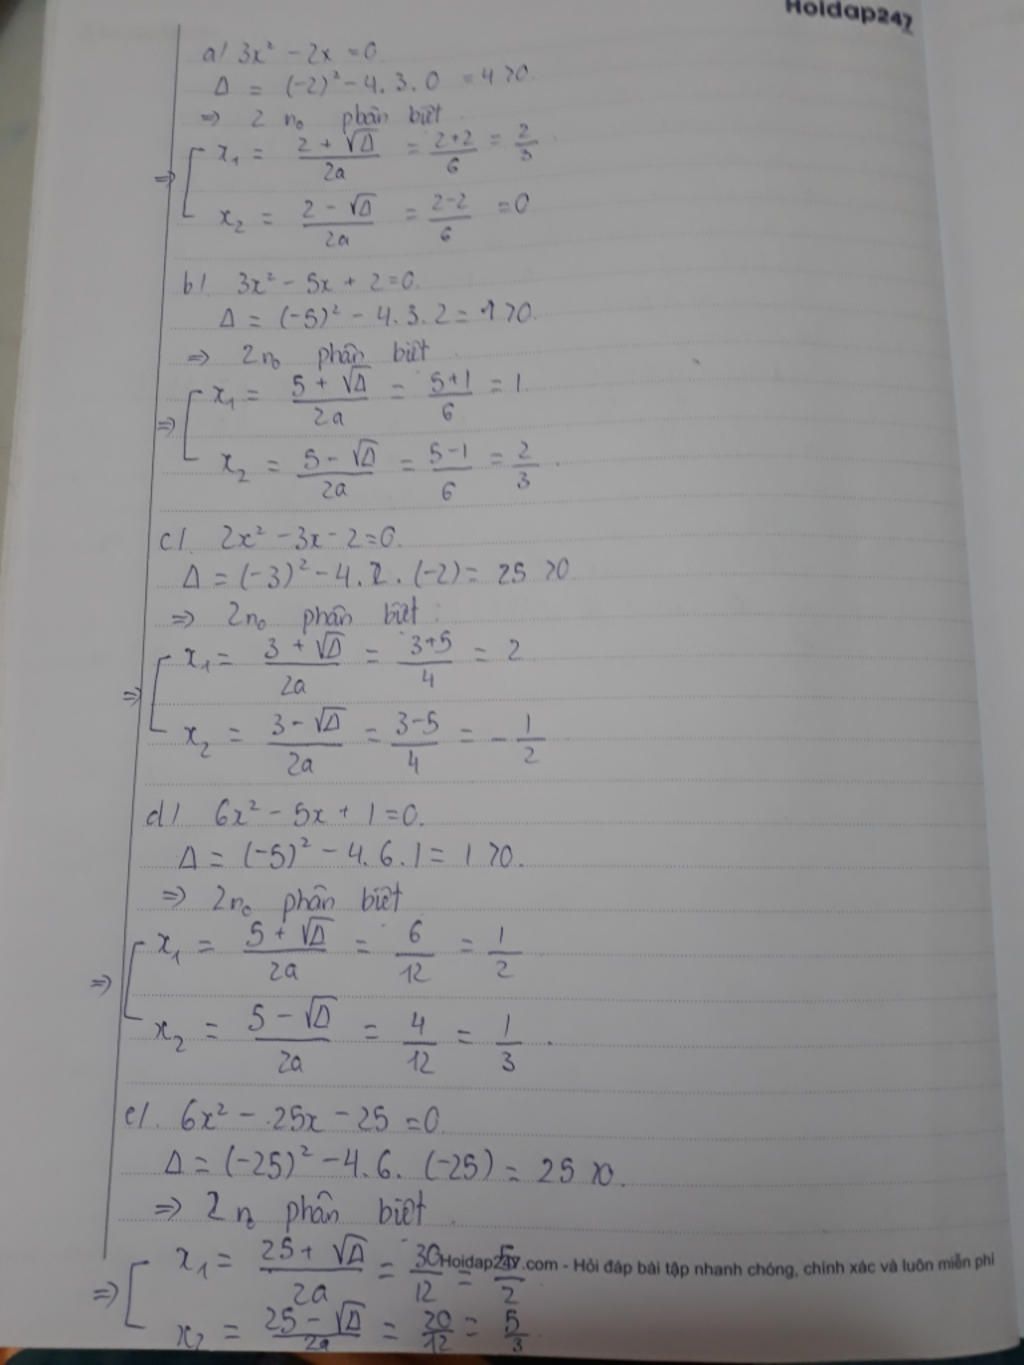 Hoidap247
a/ 3x² - 2x = 0.
Δ = (-2)² - 4.3.0 = 4 > 0.
=> 2 n₀ phân biệt
=> [ x₁ = (2 + √Δ)/2a = (2+2)/6 = 2/3
x₂ = (2 - √Δ)/2a = (2-2)/6 = 0
b/. 3x² - 5x + 2 = 0.
Δ = (-5)² - 4.3.2 = 1 > 0.
=> 2n₀ phân biệt
=> [ x₁ = (5 + √Δ)/2a = (5+1)/6 = 1.
x₂ = (5 - √Δ)/2a = (5-1)/6 = 2/3.
c/. 2x² - 3x - 2 = 0.
Δ = (-3)² - 4.2.(-2) = 25 > 0
=> 2n₀ phân biệt:
=> [ x₁ = (3 + √Δ)/2a = (3+5)/4 = 2
x₂ = (3 - √Δ)/2a = (3-5)/4 = -1/2
d/ 6x² - 5x + 1 = 0.
Δ = (-5)² - 4.6.1 = 1 > 0.
=> 2n₀ phân biệt
=> [ x₁ = (5 + √Δ)/2a = 6/12 = 1/2
x₂ = (5 - √Δ)/2a = 4/12 = 1/3.
e/. 6x² - 25x - 25 = 0
Δ = (-25)² - 4.6.(-25) = 25 > 0.
=> 2 n₀ phân biệt.
=> [ x₁ = (25 + √Δ)/2a = 30/12 = 5/2
Hoidap247.com - Hỏi đáp bài tập nhanh chóng, chính xác và luôn miễn phí
x₂ = (25 - √Δ)/2a = 20/12 = 5/3